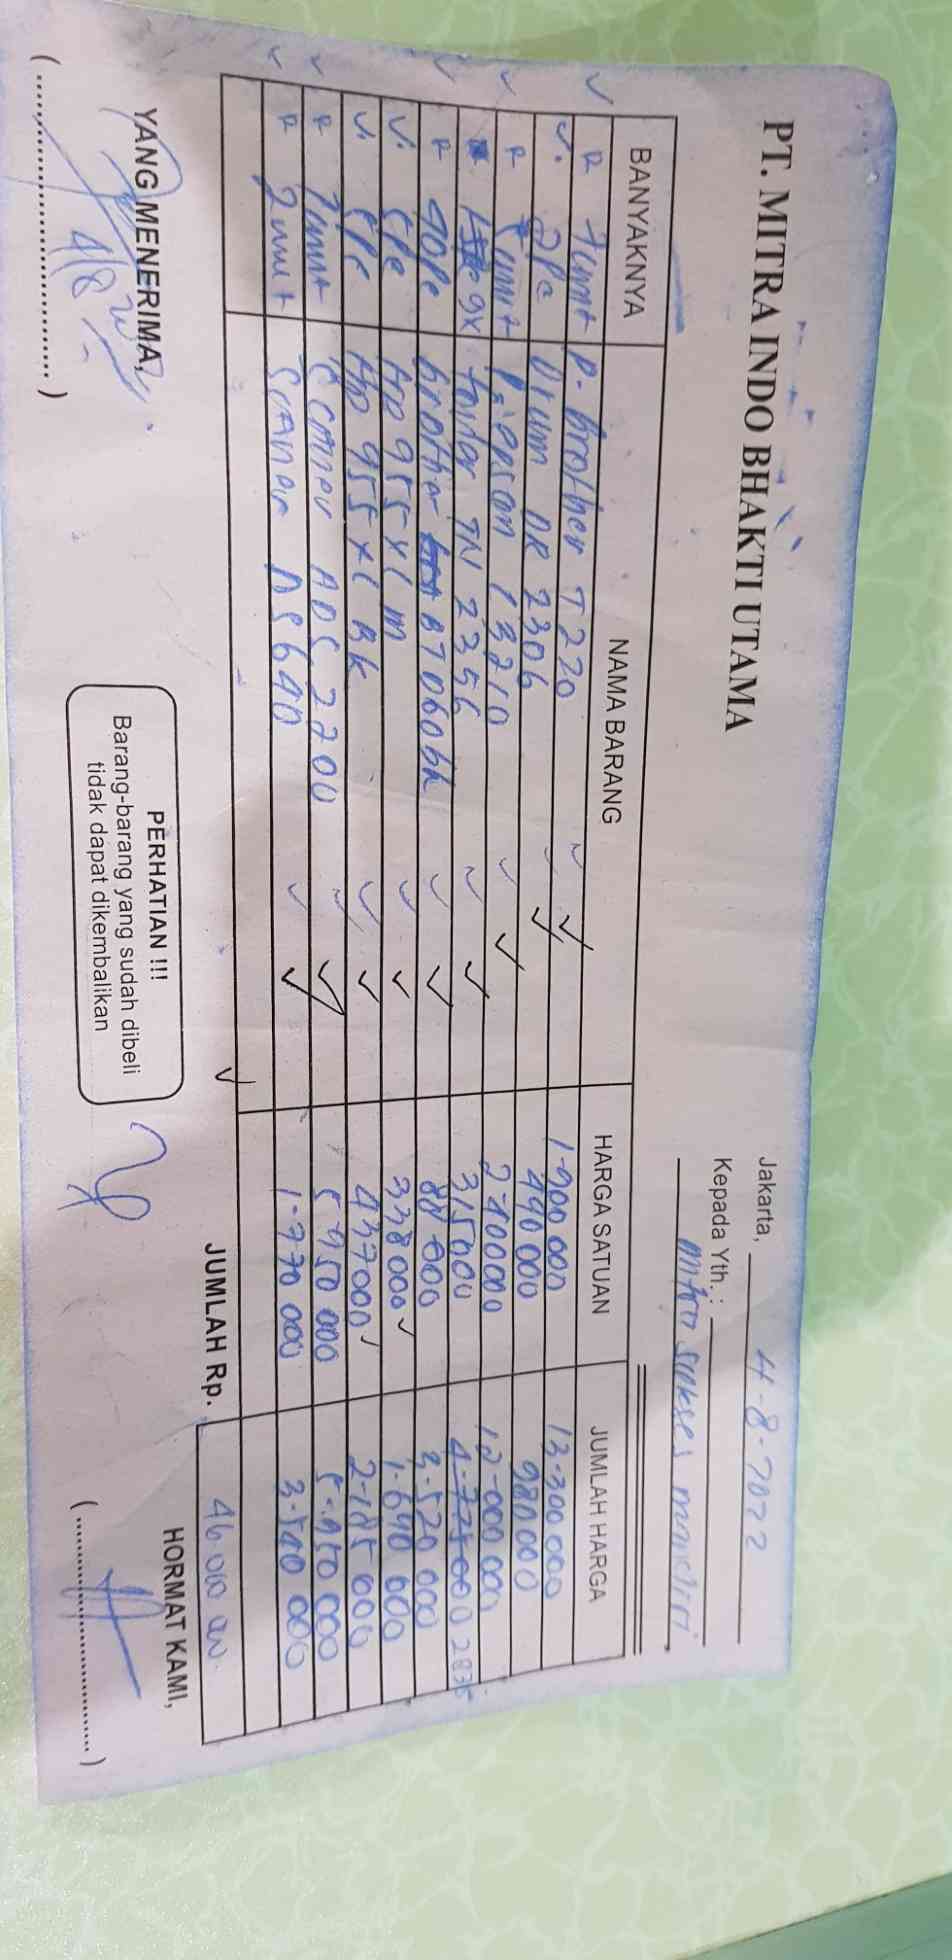 PT. MITRA INDO BHAKTI UTAMA
Jakarta, 4-8-2022
Kepada Yth. :
mitra sukses mandiri
BANYAKNYA NAMA BARANG HARGA SATUAN JUMLAH HARGA
7 unit P. brother T220 1.900 000 13.300 000
2pc Drum DR 2306 490 000 980 000
unit L3210 2400000 12.000 000
9x toner TN 2356 315000 4.725000 2835
40pc brother BT D60bk 88 000 3.520 000
5pc Hp 955 XL m 338000 1.690 000
5pc Hp 955 XL BK 437000 2.185 000
1unit Scanner ADS 2200 5.950 000 5.950 000
2 unit Scanner DS640 1.770 000 3.540 000
JUMLAH Rp. 46 000 000
YANG MENERIMA,
4/8
(........................)
PERHATIAN !!!
Barang-barang yang sudah dibeli
tidak dapat dikembalikan
HORMAT KAMI,
(........................)